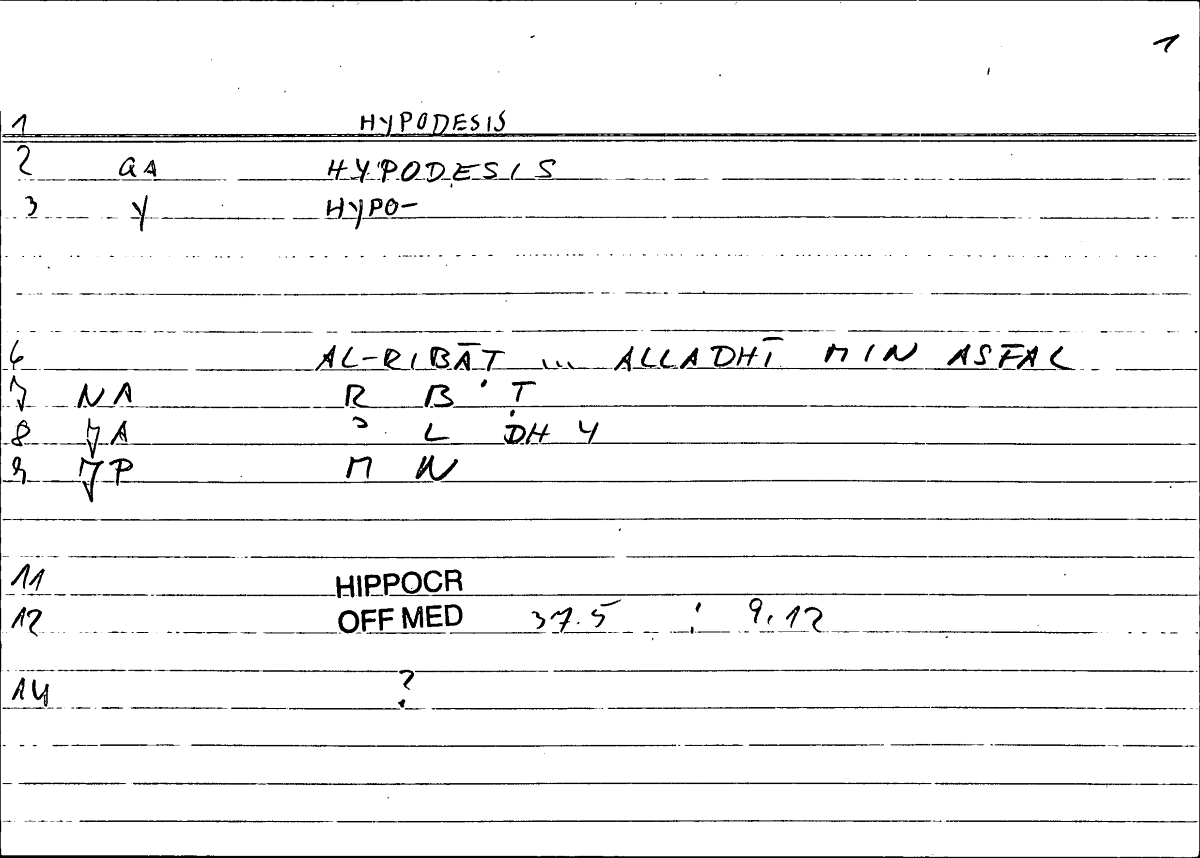 1
1 HYPODESIS
2 GA HYPODESIS
3 Y HYPO-
6 AL-RIBĀṬ ... ALLADHĪ MIN ASFAL
7 NA R B Ṭ
8 A ʾ L DH Y
9 P M N
11 HIPPOCR
12 OFF MED 37.5 : 9,12
14 ?